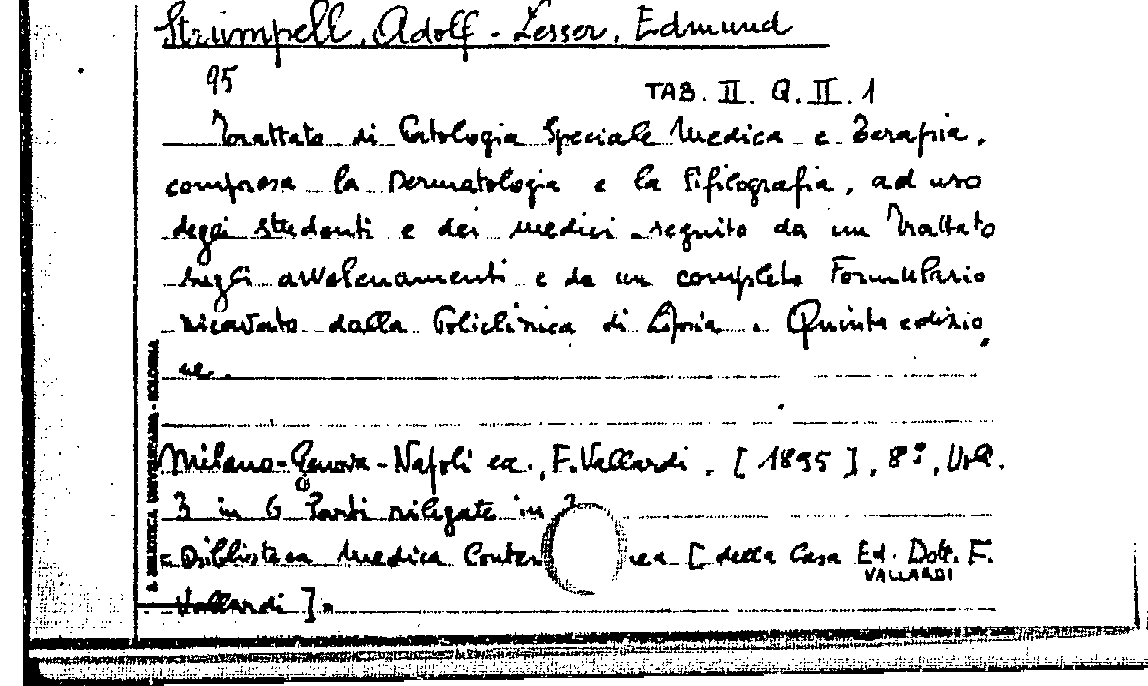 Strümpell, Adolf - Lesser, Edmund
95
TAB. II. Q. II. 1
Trattato di Patologia Speciale Medica e Terapia,
compresa la Dermatologia e la Sifilografia, ad uso
degli studenti e dei medici seguito da un Trattato
sugli avvelenamenti e da un completo Formulario
ricavato dalla Policlinica di Lipsia. Quinta edizio
ne.
Milano-Genova-Napoli ec., F. Vallardi, [1895], 8º, Vol.
3 in 6 Parti rilegate in
= Biblioteca Medica Conte nea [della Casa Ed. Dott. F.
VALLARDI
Vallardi].
B. BIBLIOTECA UNIVERSITARIA - BOLOGNA